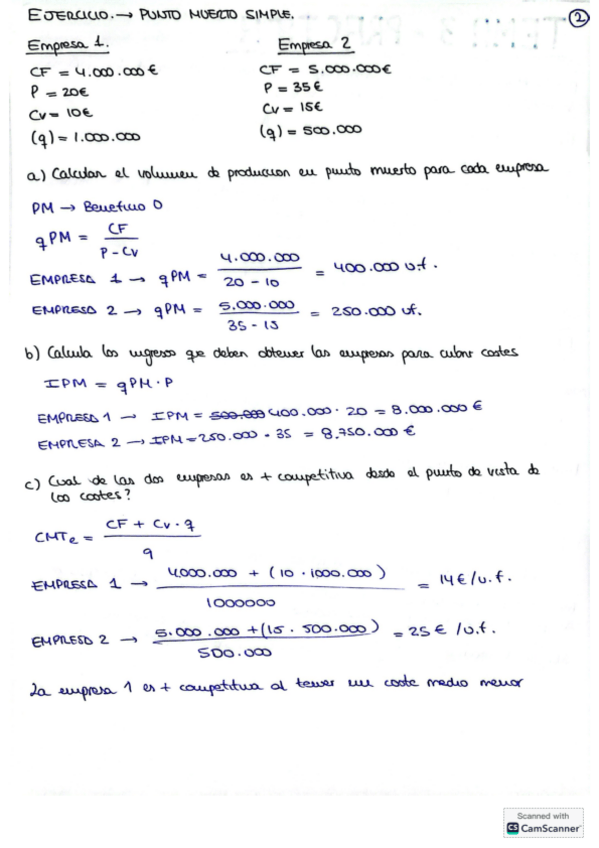 EJERCICIO. → PUNTO MUERTO SIMPLE.
2
Empresa 1.
CF = 4.000.000 €
P = 20€
Cv = 10€
(q) = 1.000.000
Empresa 2
CF = 5.000.000€
P = 35€
Cv = 15€
(q) = 500.000
a) Calcular el volumen de produccion en punto muerto para cada empresa
PM → Beneficio 0
qPM = CF / P - Cv
EMPRESA 1 → qPM = 4.000.000 / 20 - 10 = 400.000 u.f.
EMPRESA 2 → qPM = 5.000.000 / 35 - 15 = 250.000 uf.
b) Calcula los ingresos que deben obtener las empresas para cubrir costes
IPM = qPM · P
EMPRESA 1 → IPM = 500.000 400.000 · 20 = 8.000.000 €
EMPRESA 2 → IPM = 250.000 · 35 = 8,750.000 €
c) Cual de las dos empresas es + competitiva desde el punto de vista de
los costes?
CMTe = CF + Cv · q / q
EMPRESA 1 → 4.000.000 + (10 · 1000.000) / 1000000 = 14€/u.f.
EMPRESA 2 → 5.000.000 + (15 · 500.000) / 500.000 = 25€ /u.f.
La empresa 1 es + competitiva al tener un coste medio menor
Scanned with
CS CamScanner